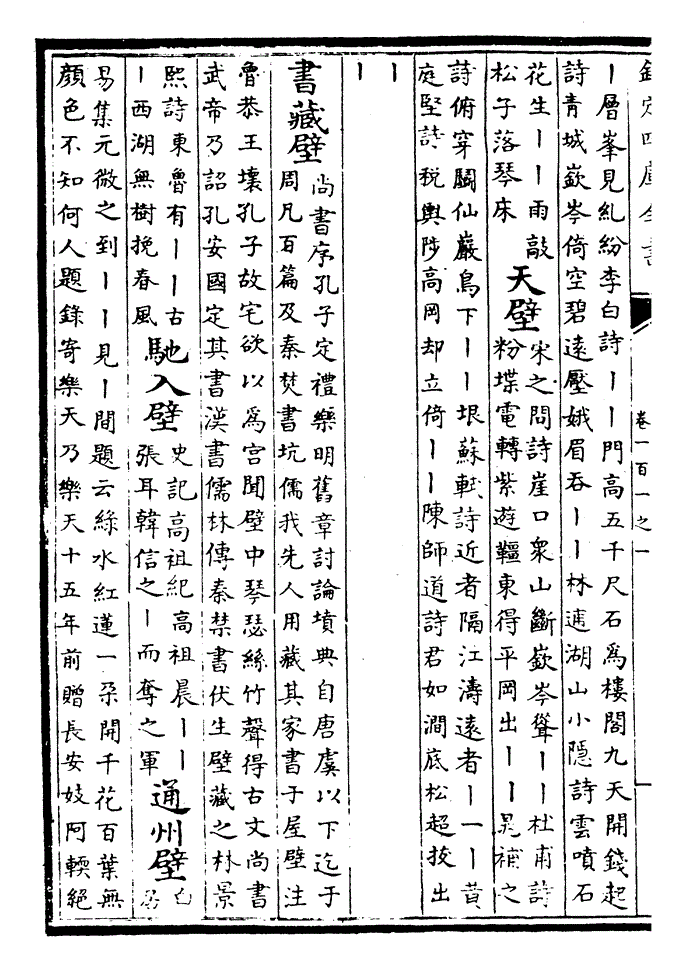 欽定四庫全書
卷一百一之一
丨層峯見糺紛李白詩丨丨門高五千尺石為樓閣九天開錢起
詩青城嶔岑倚空碧遠壓娥眉吞丨丨林逋湖山小隱詩雲噴石
花生丨丨雨敲
松子落琴床
天壁
宋之問詩崖口衆山斷嶔岑聳丨丨杜甫詩
粉堞電轉紫遊韁東得平岡出丨丨晁補之
詩俯穿鬬仙巖鳥下丨丨垠蘇軾詩近者隔江濤遠者丨一丨黄
庭堅詩税輿陟高岡却立倚丨丨陳師道詩君如澗底松超拔出
丨
丨
書藏壁
尚書序孔子定禮樂明舊章討論墳典自唐虞以下迄于
周凡百篇及秦焚書坑儒我先人用藏其家書于屋壁注
魯恭王壞孔子故宅欲以為宫聞壁中琴瑟絲竹聲得古文尚書
武帝乃詔孔安國定其書漢書儒林傳秦禁書伏生壁藏之林景
熙詩東魯有丨丨古
丨西湖無樹挽春風
馳入壁
史記高祖紀高祖晨丨丨
張耳韓信之丨而奪之軍
通州壁
白
居
易集元微之到丨丨見丨間題云綠水紅蓮一朶開千花百葉無
顔色不知何人題錄寄樂天乃樂天十五年前贈長安妓阿輭絕